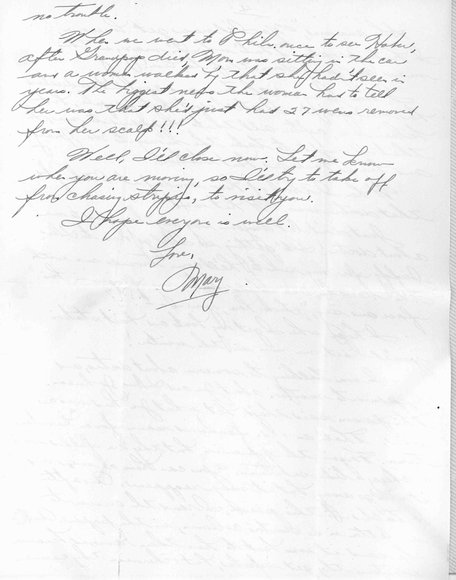 no trouble.
When we went to Phila. once to see Baba,
after Grandpop died, Mom was sitting in the car
and a woman walked by that she hadn't seen in
years. The biggest news the woman had to tell
her was that she'd just had 27 wens removed
from her scalp!!!
Well, I'll close now. Let me know
when you are moving, so I'll try to take off
from chasing, to visit you.
I hope everyone is well.
Love,
Mary